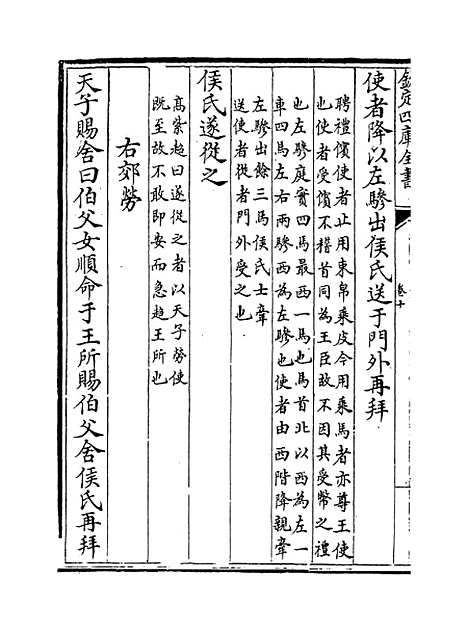 欽定四庫全書
卷十
使者降以左驂出侯氏送于門外再拜
聘禮儐使者止用束帛乘皮今用乘馬者亦尊王使
也使者受儐不稽首同為王臣故不因其受幣之禮
也左驂庭實四馬最西一馬也馬首北以西為左一
車四馬左右兩驂西為左驂也使者由西階降親牽
左驂出餘三馬侯氏士牽
送使者從者門外受之也
侯氏遂從之
髙紫超曰遂從之者以天子勞使
既至故不敢即安而急趨王所也
右郊勞
天子賜舍曰伯父女順命于王所賜伯父舍侯氏再拜